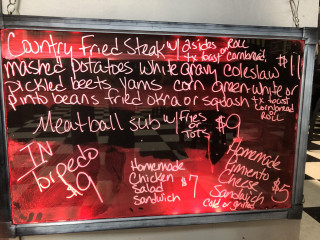 Country Fried Steak w/ 2 sides or ROLL
tx toast cornbread, $11
mashed Potatoes white gravy coleslaw
pickled beets Yams corn green white or
pinto beans fried okra or squash tx toast
cornbread
ROLL
Meatball sub w/ fries or TOTS $9
IN
Torpedo
$9
Homemade
Chicken
Salad
Sandwich $7
Homemade
Pimento
Cheese
Sandwich $5
cold or grilled